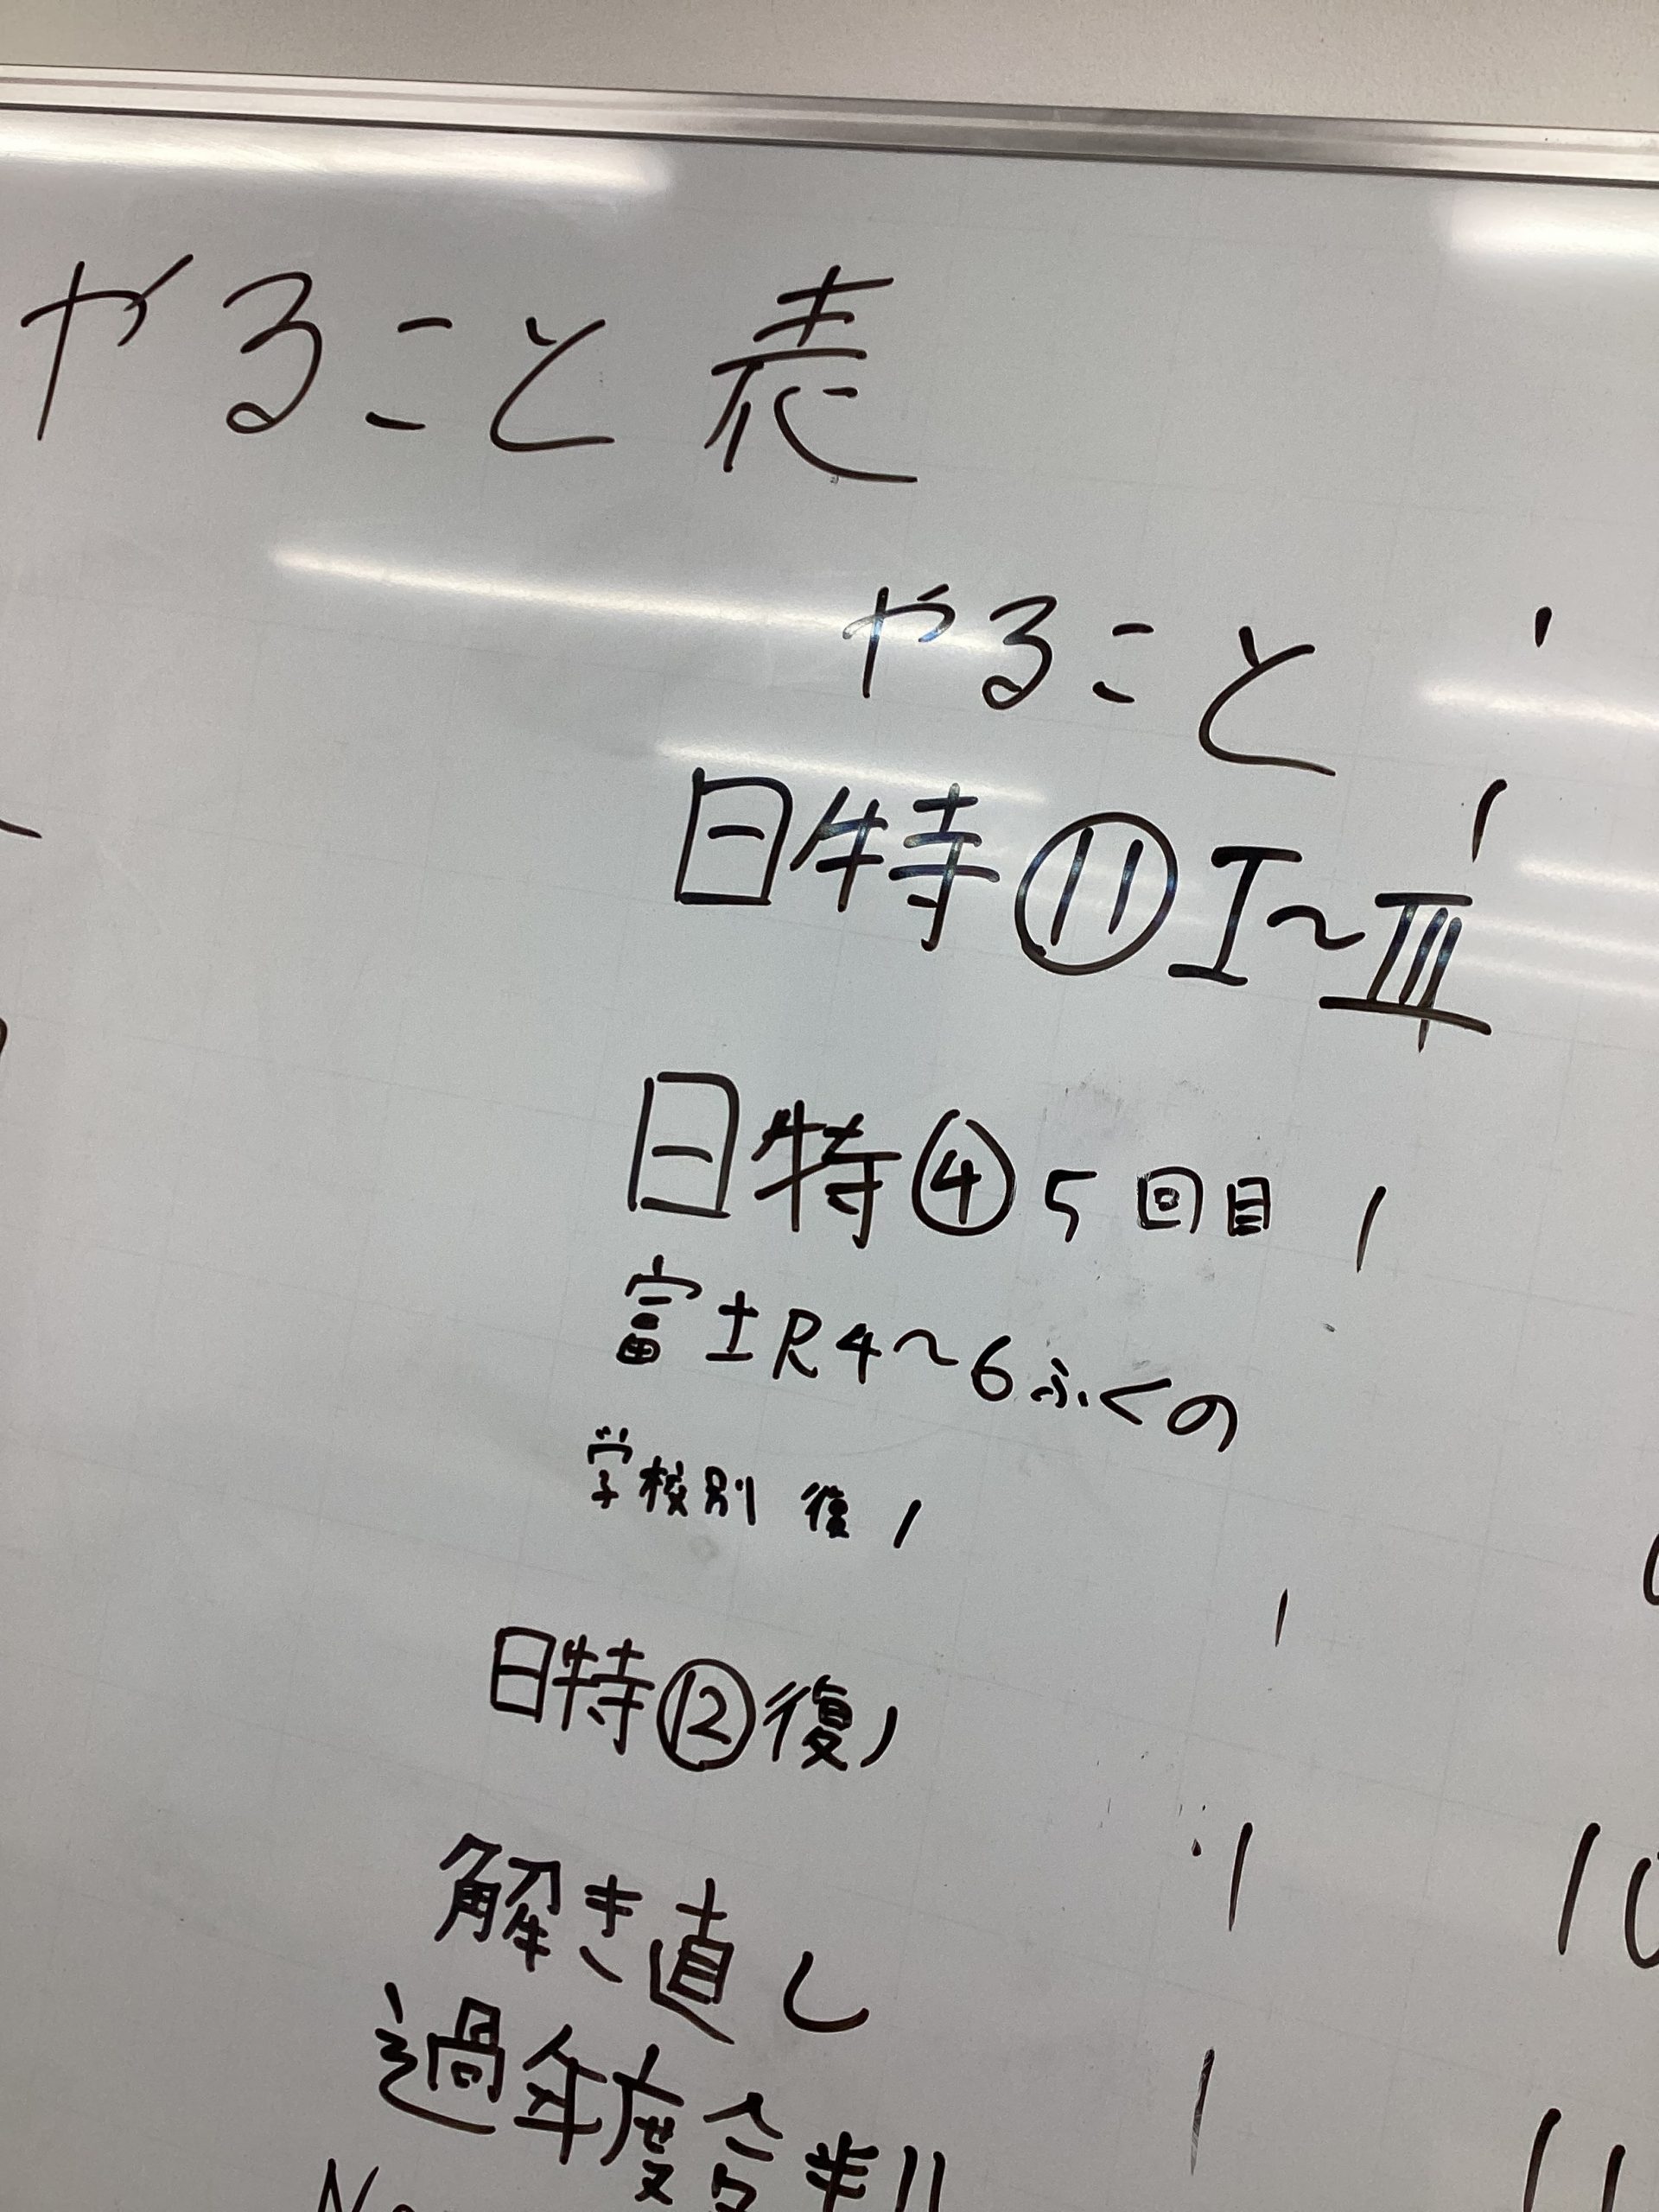 やること表
やること
日特⑪Ⅰ~Ⅲ
日特④5回目
富士R4~6ふくの
学校別 復
日特⑫復
解き直し
過年度合判
10
11